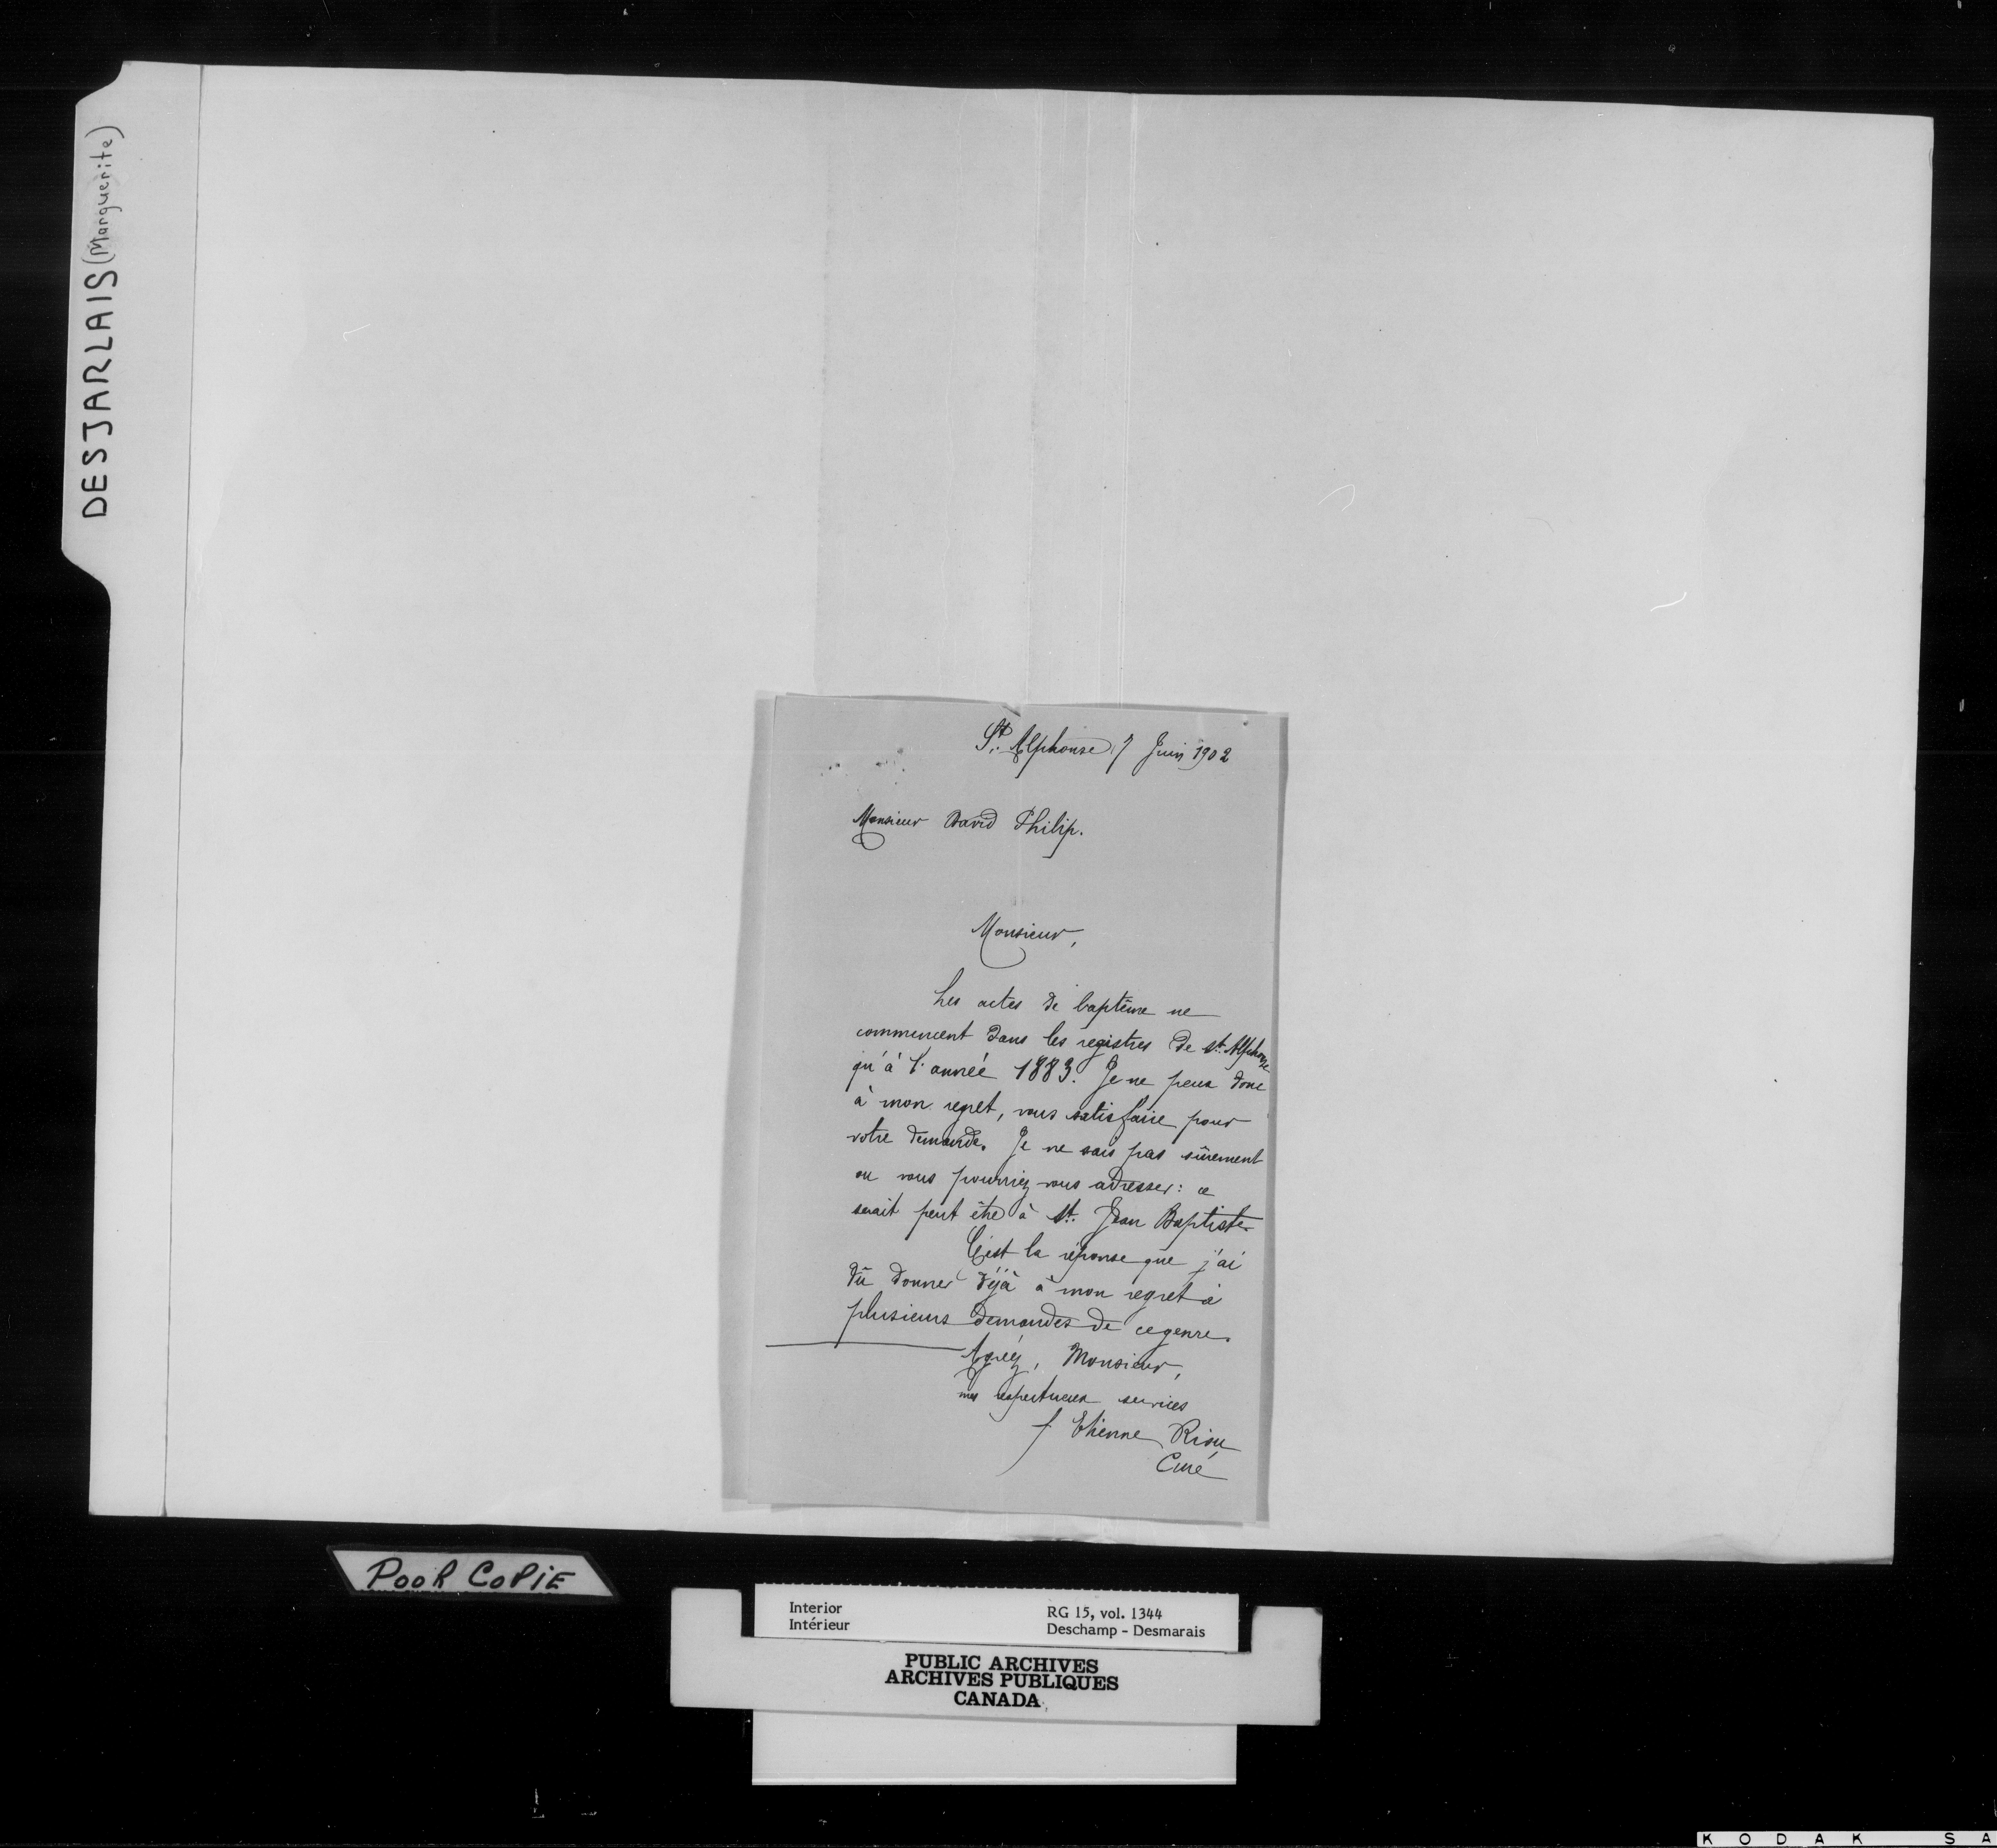 DESJARLAIS (Marguerite)
St. Alphonse, 7 Juin 1902
Monsieur David Philip.
Monsieur,
Les actes de baptême ne
commencent dans les registres de St. Alphonse
qu'à l'année 1883. Je ne peux donc
à mon regret, vous satisfaire pour
votre demande. Je ne sais pas sûrement
ou vous pourriez vous adresser : ce
serait peut être à St. Jean Baptiste
C'est la réponse que j'ai
dû donner déjà à mon regret à
plusieurs demandes de ce genre.
Agréez, Monsieur,
mes respectueux services
f. Etienne Riou
Curé
POOR COPIE
Interior
Intérieur
RG 15, vol. 1344
Deschamp - Desmarais
PUBLIC ARCHIVES
ARCHIVES PUBLIQUES
CANADA
KODAK SA